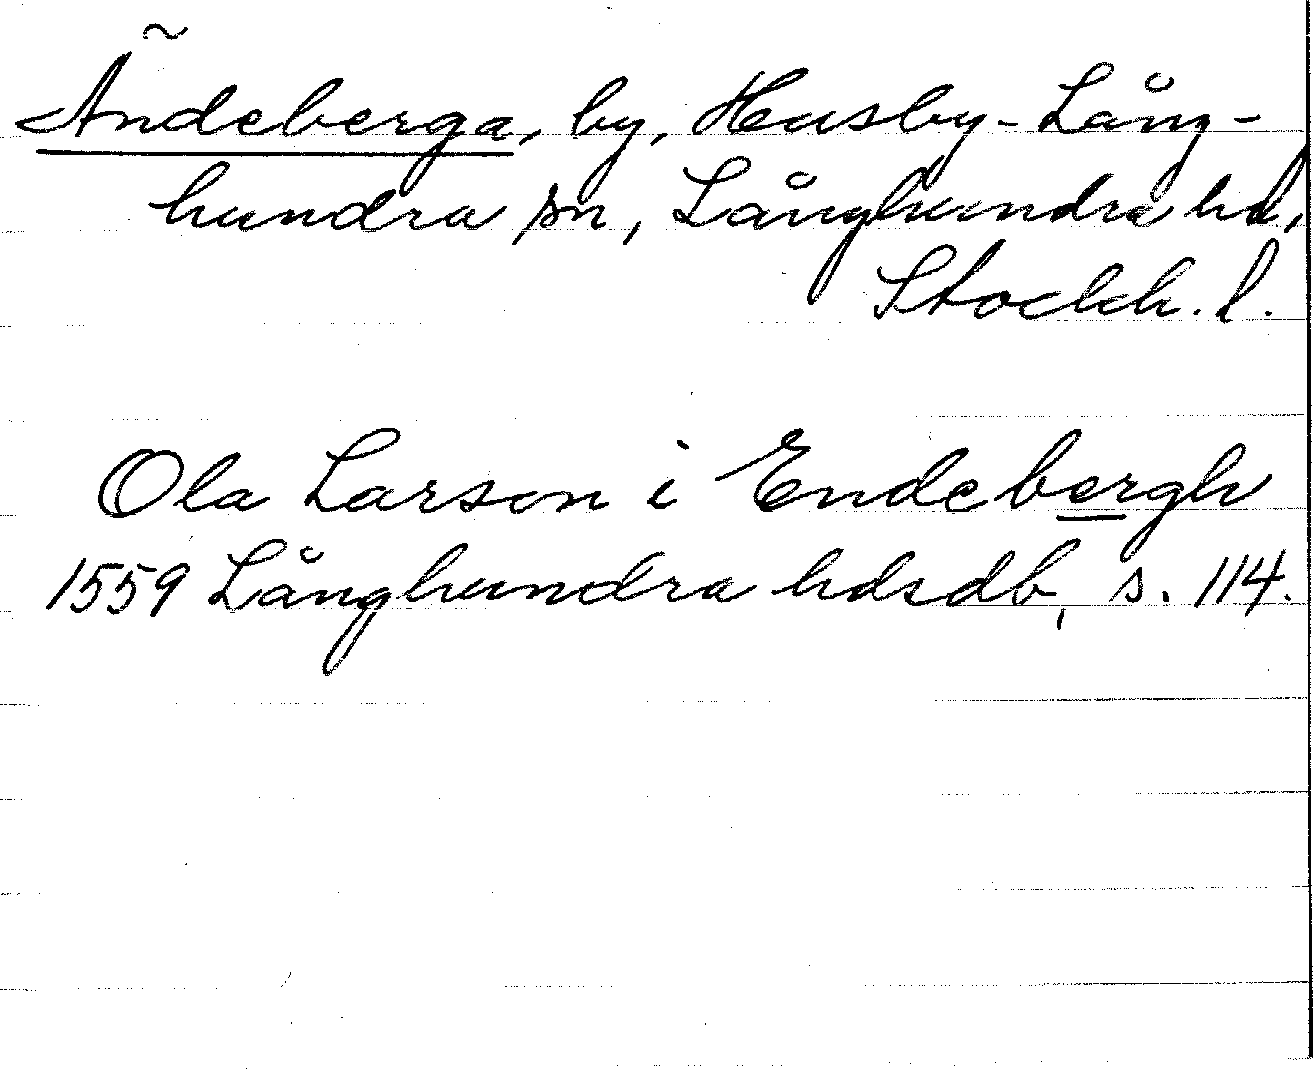 Ändeberga, by, Husby-Lång-
hundra sn, Långhundra hd,
Stockh. l.
Ola Larson i Endebergh
1559 Långhundra hdsdb, s. 114.